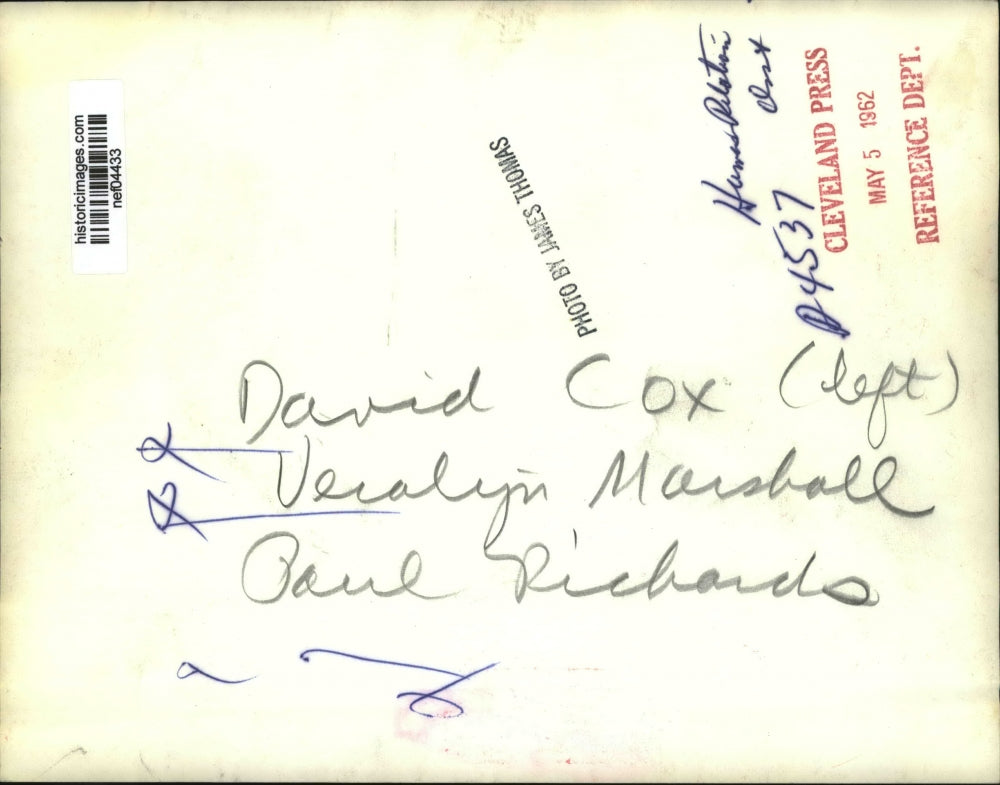 historicimages.com
nef04433
PHOTO BY JAMES THOMAS
Human Relations
D4537
CLEVELAND PRESS
MAY 5 1962
REFERENCE DEPT.
David Cox (left)
Veralyn Marshall
Paul Richards